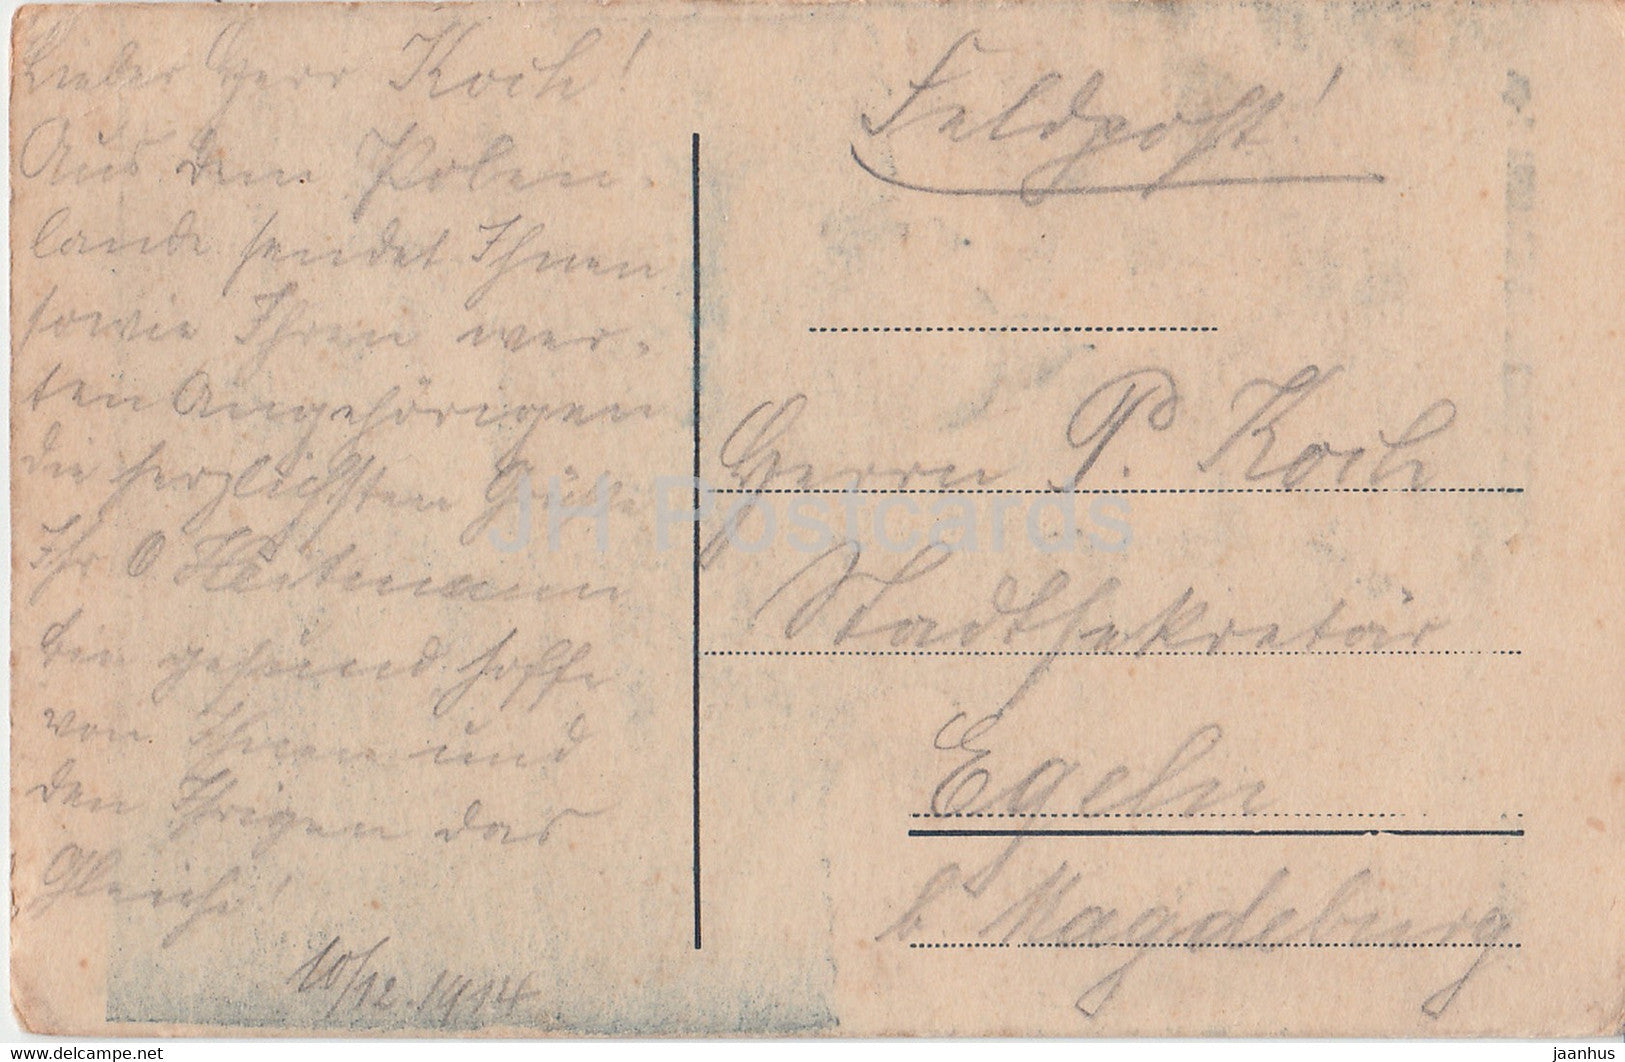 Lieber Herr Koch!
Aus dem Polen-
lande sendet Ihnen
sowie Ihren wer-
ten Angehörigen
die herzlichsten Grüße
Ihr O. Heitmann
bin gesund hoffe
von Ihnen und
den Ihrigen das
Gleiche!
10/12.1914
Feldpost!
Herrn P. Koch
Stadtsekretär
Egeln
b. Magdeburg
JH Postcards
www.delcampe.net
jaanhus